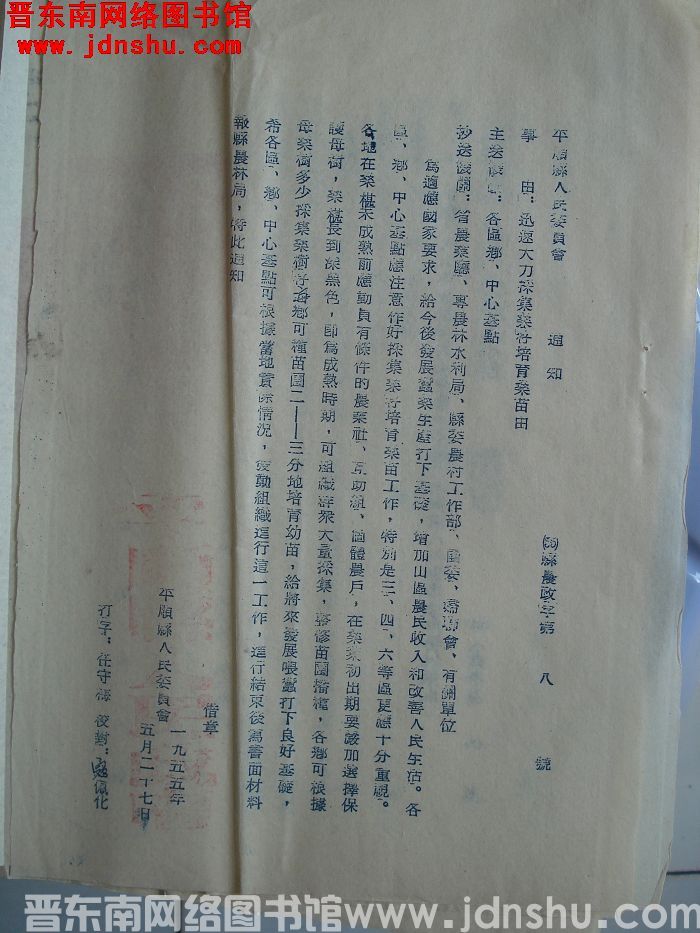 晋东南网络图书馆
www.jdnshu.com
平順縣人民委員會 通知
㊄縣農政字第 八 號
事 由：迅速大力採集桑籽培育桑苗由
主送機關：各區鄉、中心基點
抄送機關：省農業廳、專農林水利局、縣委農村工作部、團委、婦聯會、有關單位
為適應國家要求，給今後發展蠶桑生產打下基礎，增加山區農民收入和改善人民生活。各
區、鄉、中心基點應注意作好採集桑籽培育桑苗工作，特別是三、四、六等區更應十分重視。
各地在桑椹未成熟前應動員有條件的農業社、互助組、個體農戶，在桑葉初出期要嚴加選擇保
護母樹，桑椹長到深黑色，即為成熟時期，可組織群衆大量採集，整修苗圃播種，各鄉可根據
母桑樹多少採集桑樹籽每鄉可種苗圃二——三分地培育幼苗，給將來發展喂蠶打下良好基礎，
希各區、鄉、中心基點可根據當地實際情況，發動組織進行這一工作，進行結束後為書面材料
報縣農林局，特此通知
借章
平順縣人民委員會
一九五五年
五月二十七日
打字：任守梅 校對：
晋东南网络图书馆 www.jdnshu.com